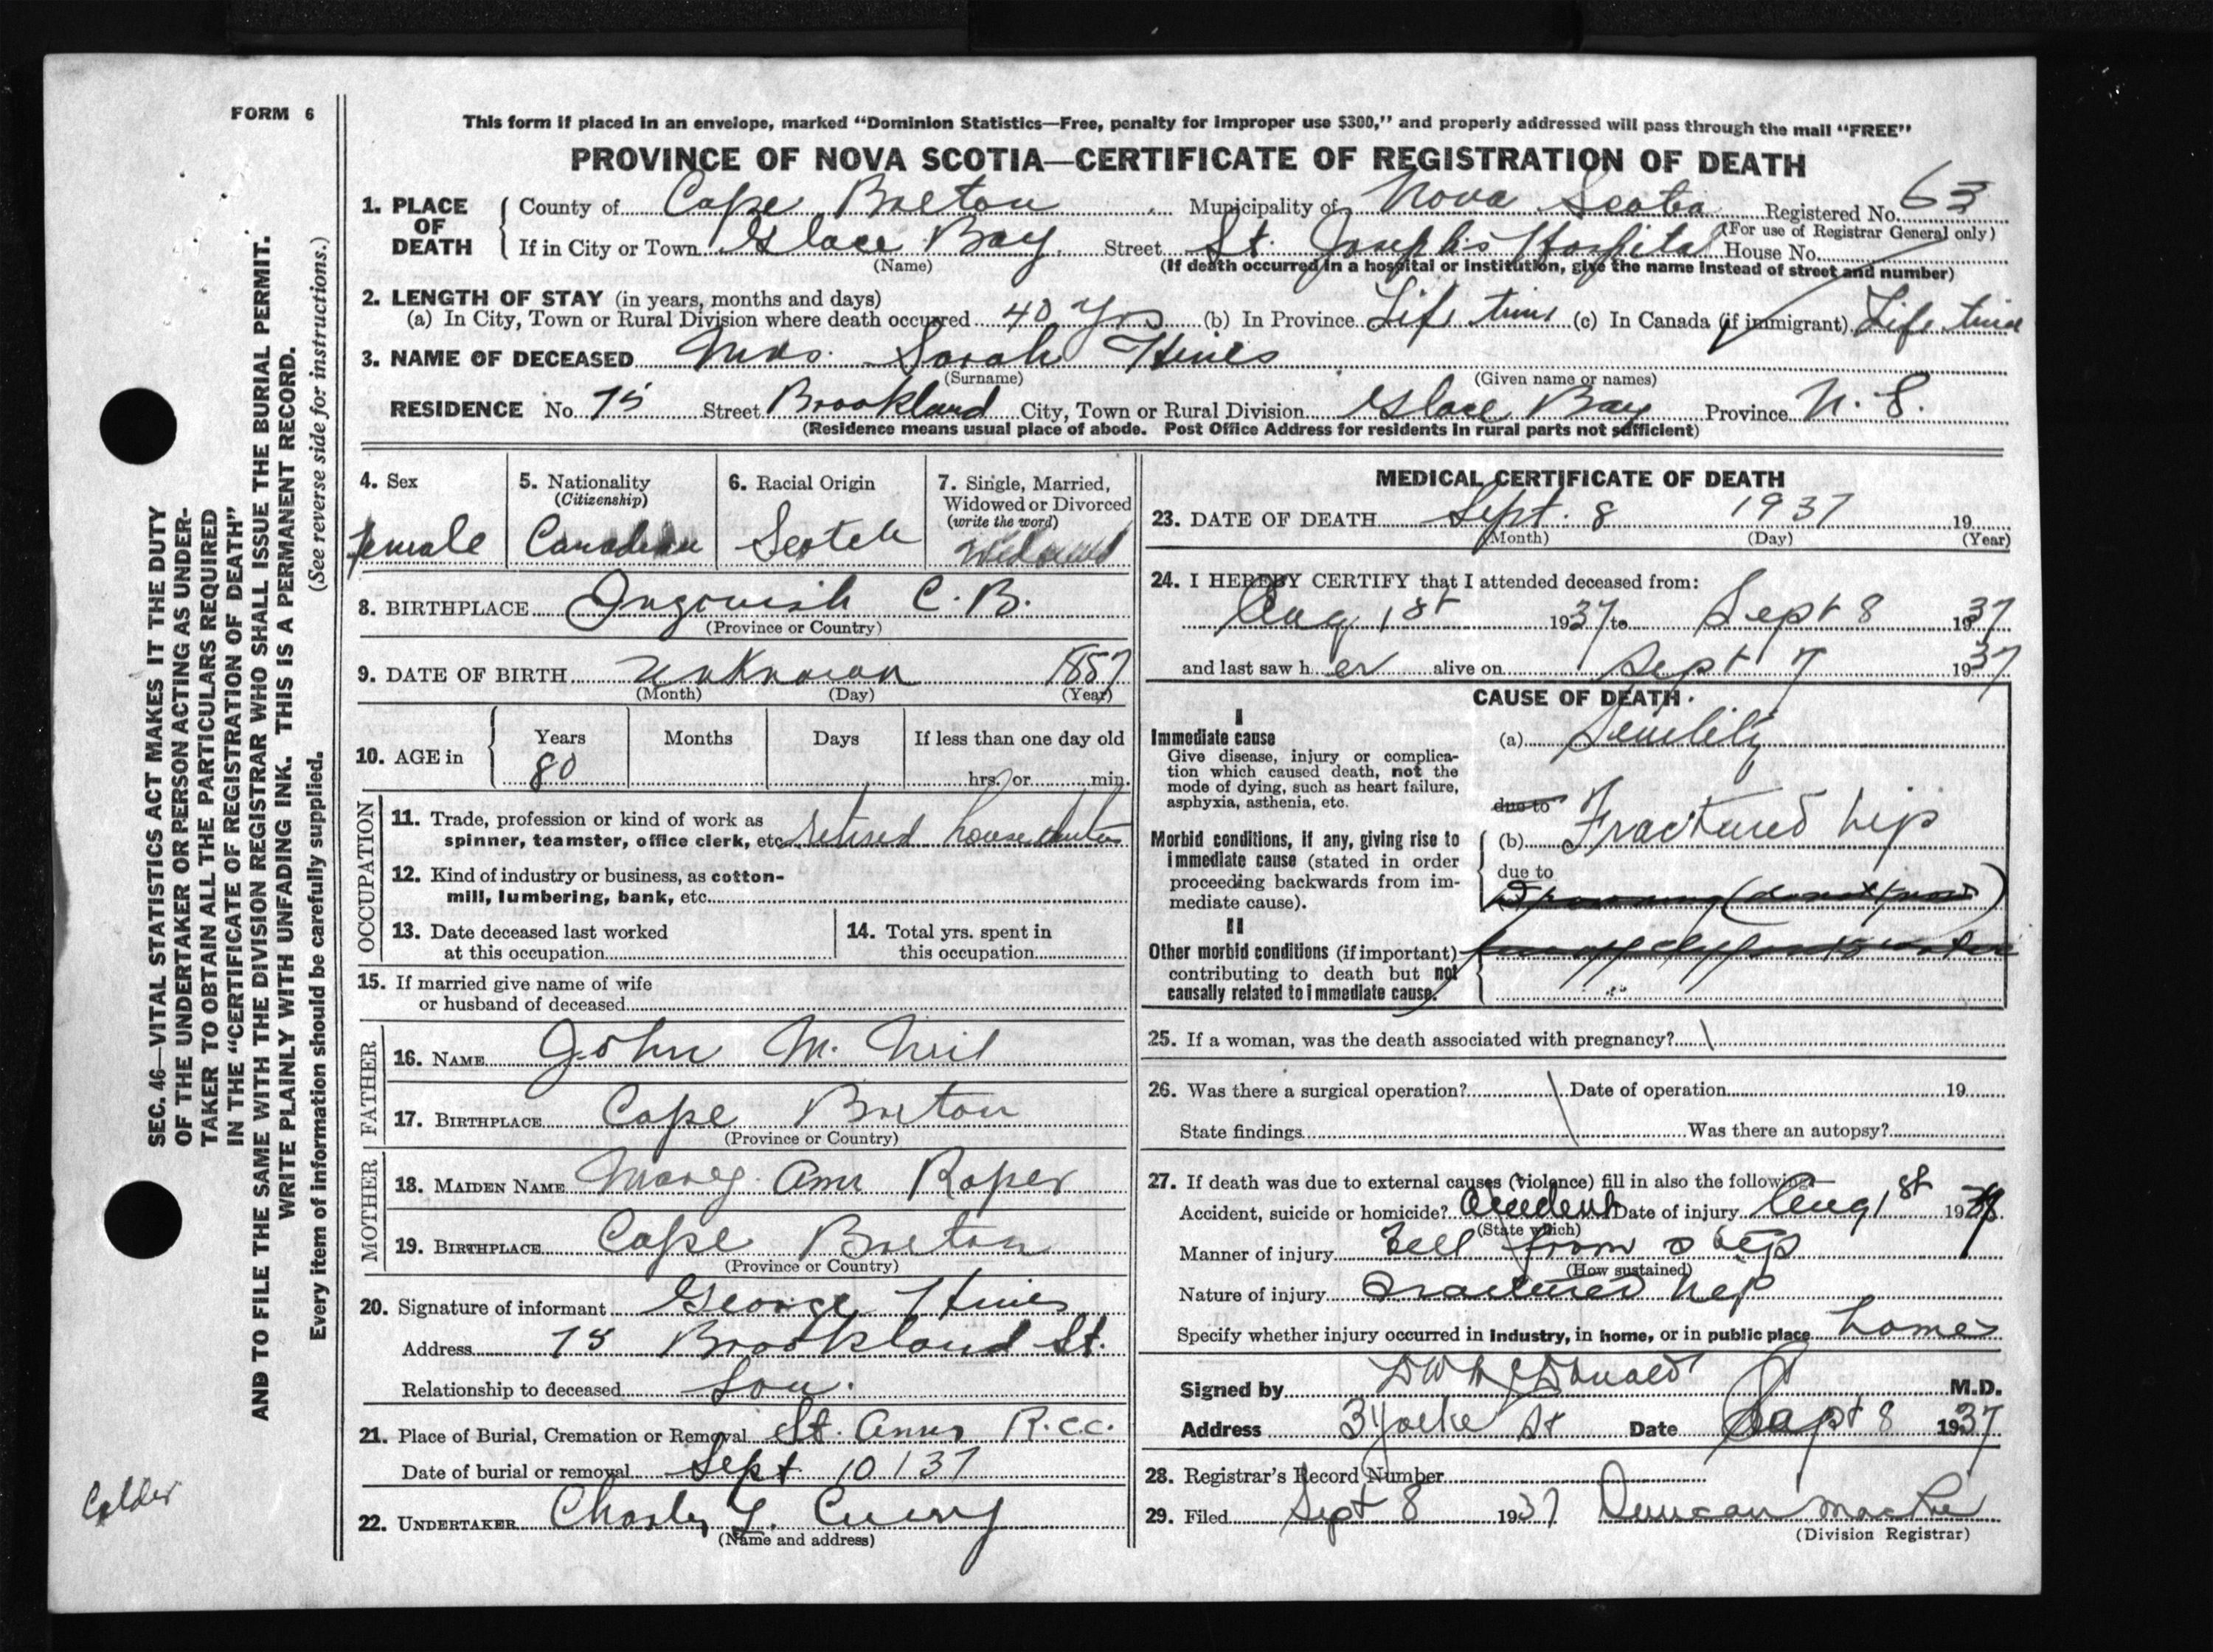 FORM 6
This form if placed in an envelope, marked "Dominion Statistics—Free, penalty for improper use $300," and properly addressed will pass through the mail "FREE"
PROVINCE OF NOVA SCOTIA—CERTIFICATE OF REGISTRATION OF DEATH
1. PLACE OF DEATH County of Cape Breton Municipality of Nova Scotia Registered No. 63
(For use of Registrar General only)
If in City or Town Glace Bay. Street St. Joseph's Hospital House No.
(Name) (If death occurred in a hospital or institution, give the name instead of street and number)
2. LENGTH OF STAY (in years, months and days)
(a) In City, Town or Rural Division where death occurred 40 yrs (b) In Province Life time (c) In Canada (if immigrant) Life time
3. NAME OF DECEASED Mrs. Sarah Hines
(Surname) (Given name or names)
RESIDENCE No. 75 Street Brookland City, Town or Rural Division Glace Bay Province N. S.
(Residence means usual place of abode. Post Office Address for residents in rural parts not sufficient)
4. Sex
female
5. Nationality
(Citizenship)
Canadian
6. Racial Origin
Scotch
7. Single, Married,
Widowed or Divorced
(write the word)
Widowed
8. BIRTHPLACE Ingonish C. B.
(Province or Country)
9. DATE OF BIRTH unknown 1857
(Month) (Day) (Year)
10. AGE in Years Months Days If less than one day old
80 hrs. or min.
OCCUPATION
11. Trade, profession or kind of work as
spinner, teamster, office clerk, etc. retired house duties
12. Kind of industry or business, as cotton-
mill, lumbering, bank, etc.
13. Date deceased last worked
at this occupation
14. Total yrs. spent in
this occupation
15. If married give name of wife
or husband of deceased
FATHER
16. NAME John Mc Neil
17. BIRTHPLACE Cape Breton
(Province or Country)
MOTHER
18. MAIDEN NAME Mary Ann Roper
19. BIRTHPLACE Cape Breton
(Province or Country)
20. Signature of informant George Hines
Address 75 Brookland St.
Relationship to deceased Son.
21. Place of Burial, Cremation or Removal St. Anns R.C.C.
Date of burial or removal Sept 10 / 37
22. UNDERTAKER Charles Curry
(Name and address)
MEDICAL CERTIFICATE OF DEATH
23. DATE OF DEATH Sept. 8 1937 19
(Month) (Day) (Year)
24. I HEREBY CERTIFY that I attended deceased from:
Aug 1st 1937 to Sept 8 1937
and last saw her alive on Sept 7 1937
CAUSE OF DEATH.
I
Immediate cause
Give disease, injury or complica-
tion which caused death, not the
mode of dying, such as heart failure,
asphyxia, asthenia, etc.
(a) Senility
due to
Morbid conditions, if any, giving rise to
immediate cause (stated in order
proceeding backwards from im-
mediate cause).
(b) Fractured hip
due to
II
Other morbid conditions (if important)
contributing to death but not
causally related to immediate cause.
25. If a woman, was the death associated with pregnancy?
26. Was there a surgical operation? Date of operation 19
State findings Was there an autopsy?
27. If death was due to external causes (violence) fill in also the following:
Accident, suicide or homicide? Accident Date of injury Aug 1st 1937
(State which)
Manner of injury Fell from step
(How sustained)
Nature of injury Fractured hip
Specify whether injury occurred in industry, in home, or in public place home
Signed by McDonald M.D.
Address 3 Yorke St Date Sept 8 1937
28. Registrar's Record Number
29. Filed Sept 8 1937 Duncan
(Division Registrar)
SEC. 46—VITAL STATISTICS ACT MAKES IT THE DUTY
OF THE UNDERTAKER OR PERSON ACTING AS UNDER-
TAKER TO OBTAIN ALL THE PARTICULARS REQUIRED
IN THE "CERTIFICATE OF REGISTRATION OF DEATH"
AND TO FILE THE SAME WITH THE DIVISION REGISTRAR WHO SHALL ISSUE THE BURIAL PERMIT.
WRITE PLAINLY WITH UNFADING INK. THIS IS A PERMANENT RECORD.
Every item of information should be carefully supplied. (See reverse side for instructions.)
Calder